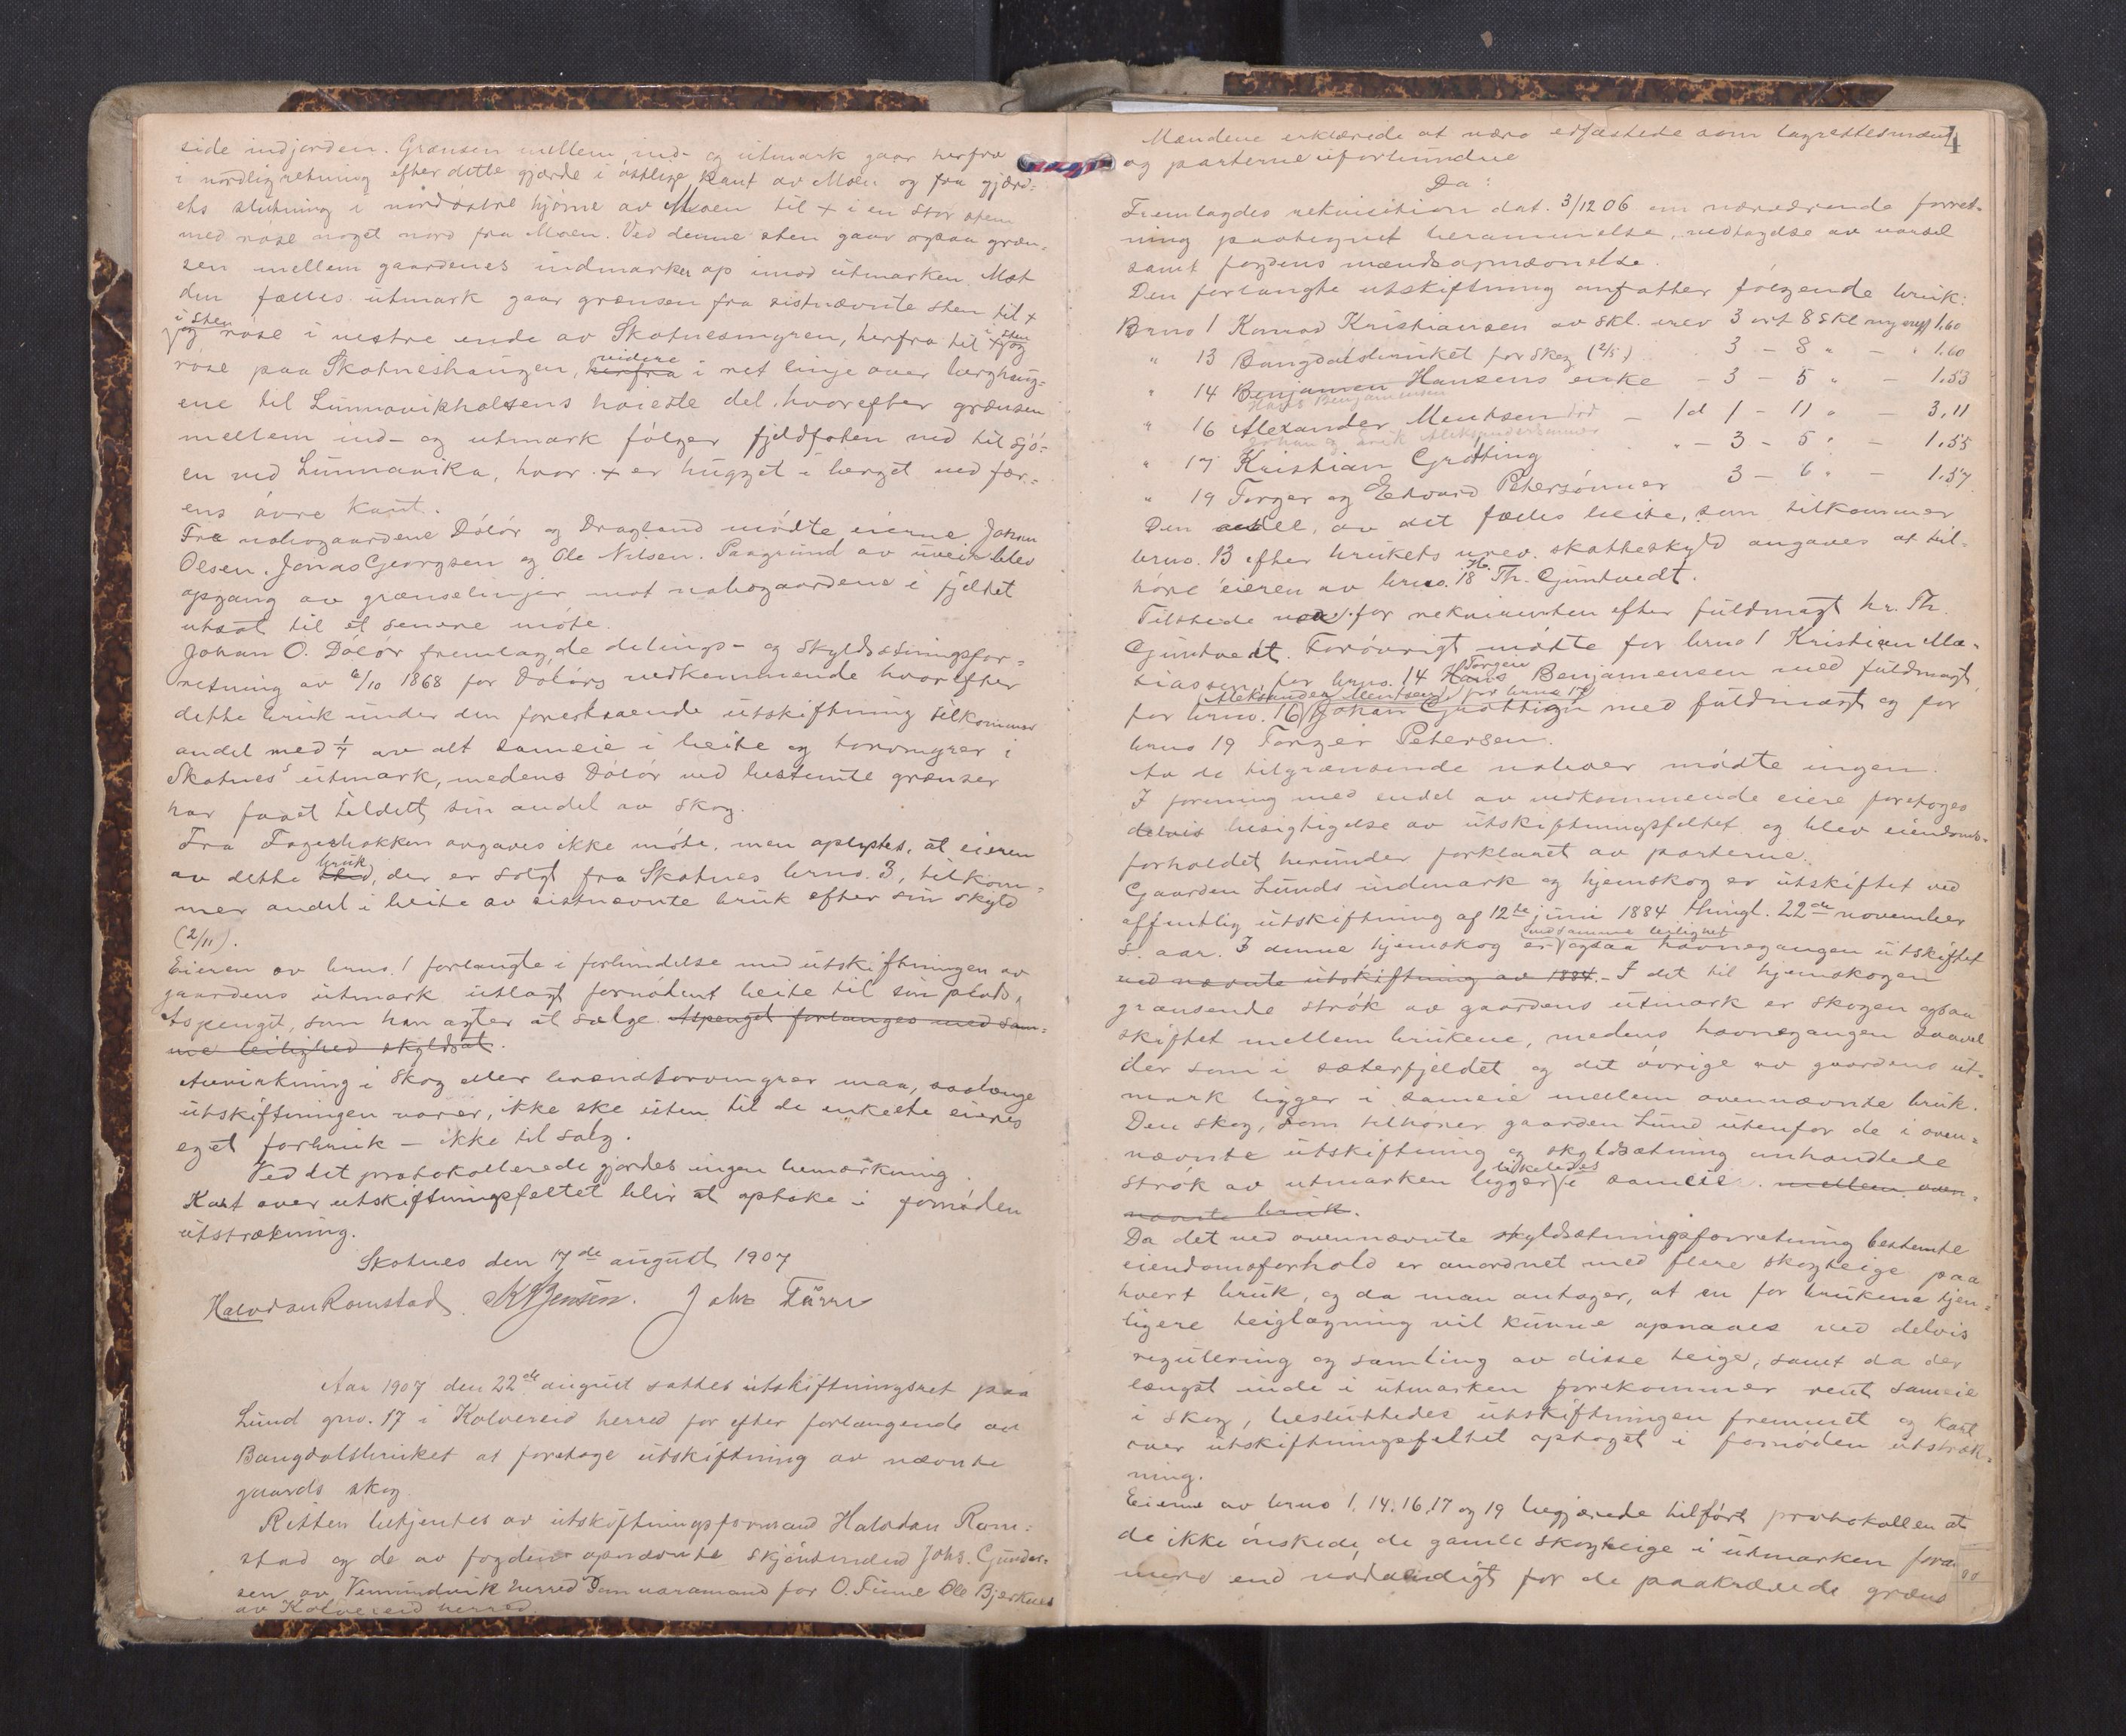 side indjorden. Grænsen mellem ind- og utmark gaar herfra
i nordlig retning efter dette gjærde i østlige kant av Moen og fra gjærd-
ets slutning i nordøstre hjørne av Moen til + i en stor sten
med røse noget nord fra Moen. Ved denne sten gaar ogsaa græn-
sen mellem gaardenes indmarker op imod utmarken. Mot
den fælles utmark gaar grænsen fra sistnævnte sten til +
i sten og røse i vestre ende av Skotnesmyren, herfra til + i sten og
røse paa Skotneshaugen, herfra videre i ret linje over berghaug-
ene til Lunnavikholsens høieste del, hvorefter grænsen
mellem ind- og utmark følger fjeldfoten ned til sjø-
en ved Lunnavika, hvor + er hugget i berget ved fær-
ens øvre kant.
Fra nabogaardene Dølør og Dragland mødte eierne Johan
Olsen, Jonas Georgsen og Ole Nilsen. Paagrund av uveir blev
opgang av grænselinjer mot nabogaardene i fjeldet
utsat til et senere møte.
Johan O. Dølør fremlagde delings- og skyldsætningsfor-
retning av 6/10 1868 for Dølørs vedkommende hvorefter
dette bruk under den forestaaende utskiftning tilkommer
andel med 1/7 av alt sameie i beite og torvmyrer i
Skotnes's utmark, medens Dølør ved bestemte grænser
har faaet tildelt sin andel av skog.
Fra Fagerbakken avgaves ikke møte, men oplystes, at eieren
av dette bruk, der er solgt fra Skotnes brno. 3, tilkom-
mer andel i beite av sistnævnte bruk efter sin skyld
(2/11).
Eieren av brno. 1 forlangte i forbindelse med utskiftningen av
gaardens utmark utlagt fornødent beite til sin plads,
Aspenget, som han agter at sælge. Aspenget forlanges med sam-
me leilighed skyldsat.
Avvirkning i skog eller brændtorvmyrer maa, saalænge
utskiftningen varer, ikke ske uten til de enkelte eieres
eget forbruk – ikke til salg.
Ved det protokollerede gjordes ingen bemærkning.
Kart over utskiftningsfeltet blir at optake i fornøden
utstrækning.
Skotnes den 17de august 1907
Halvdan Romstad. K Bjensen. Johs Finne
Aar 1907 den 22de august sattes utskiftningsret paa
Lund gno. 17 i Kolvereid herred for efter forlangende av
Bangdalsbruket at foretage utskiftning av nævnte
gaards skog.
Retten betjentes av utskiftningsformand Halvdan Rom-
stad og de av fogden opnævnte skjønsmænd Johs. Gunder-
sen av Vemundvik herred som varamand for O. Finne Ole Bjerknes
av Kolvereid herred.
4
Mændene erklærede at være edfæstede som lagrettesmænd
og parterne uforbundne
Da:
Fremlagdes rekvisition dat. 3/12 06 om nærværende forret-
ning paategnet berammelse, vedtagelse av varsel
samt fogdens mændsopnævnelse.
Den forlangte utskiftning omfatter følgende bruk:
Brno 1 Konrad Kristiansen av skl. urev 3 ort 8 skl. ny skyl 1,60
" 13 Bangdalsbruket for skog (2/5) 3 – 8 " – " 1.60
" 14 Benjamen Hansens enke – 3 – 5 " – 1.53
Hans Benjamensen
" 16 Alexander Mentsen død – 1 d 1 – 11 " – 3,11
Johan og Erik Aleksandersønner
" 17 Kristian Grøtting " – 3 – 5 " – 1.55
" 19 Torger og Edvard Petersønner 3 – 6 " – 1.57
Den andel, av det fælles beite, som tilkommer
brno. 13 efter brukets urev. skatteskyld angaves at til-
høre eieren av brno. 18 H. Th. Gundvedt.
Tilstede var for rekvirenten efter fuldmagt hr. Th.
Gundvedt. Forøvrigt mødte for brno 1 Kristian Ma-
tiassen, for brno. 14 Hans Torgeir Benjamensen med fuldmagt,
for brno. 16 Aleksander Mentsen, for brno 17 Johan Grøttign med fuldmagt og for
brno 19 Torger Petersen.
Av de tilgrænsende naboer mødte ingen.
I forening med endel av vedkommende eiere foretoges
delvis besigtigelse av utskiftningsfeltet og blev eiendoms-
forholdet herunder forklaret av parterne.
Gaarden Lunds indmark og hjemskog er utskiftet ved
offentlig utskiftning af 12te juni 1884 thingl. 22de november
s. aar. I denne hjemskog er ved samme leilighet ogsaa havnegangen utskiftet
ved nævnte utskiftning av 1884. – I det til hjemskogen
grænsende strøk av gaardens utmark er skogen ogsaa
skiftet mellem brukene, medens havnegangen saavel
der som i sæterfjeldet og det øvrige av gaardens ut-
mark ligger i sameie mellem ovennævnte bruk.
Den skog, som tilhører gaarden Lund utenfor de i oven-
nævnte utskiftning og skyldsætning omhandlede
strøk av utmarken ligger likeledes i sameie. mellem oven-
nævnte bruk.
Da det ved ovennævnte skyldsætningsforretning bestemte
eiendomsforhold er anordnet med flere skogteige paa
hvert bruk, og da man antager, at en for brukene tjen-
ligere teiglægning vil kunne opnaaes ved delvis
regulering og samling av disse teige, samt da der
længst inde i utmarken forekommer rent sameie
i skog, besluttedes utskiftningen fremmet og kart
over utskiftningsfeltet optaget i fornøden utstræk-
ning.
Eierne av brno 1, 14, 16, 17 og 19 begjærede tilført protokollen at
de ikke ønskede de gamle skogteige i utmarken foran-
mere end nødvendigt for de paakrævede græns